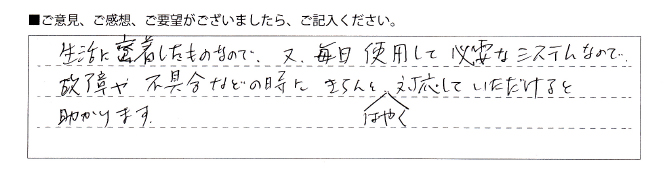 ■ご意見、ご感想、ご要望がございましたら、ご記入ください。
生活に密着したものなので、又、毎日使用して必要なシステムなので、
故障や不具合などの時に きちんと、対応していただけると
助かります。
はやく